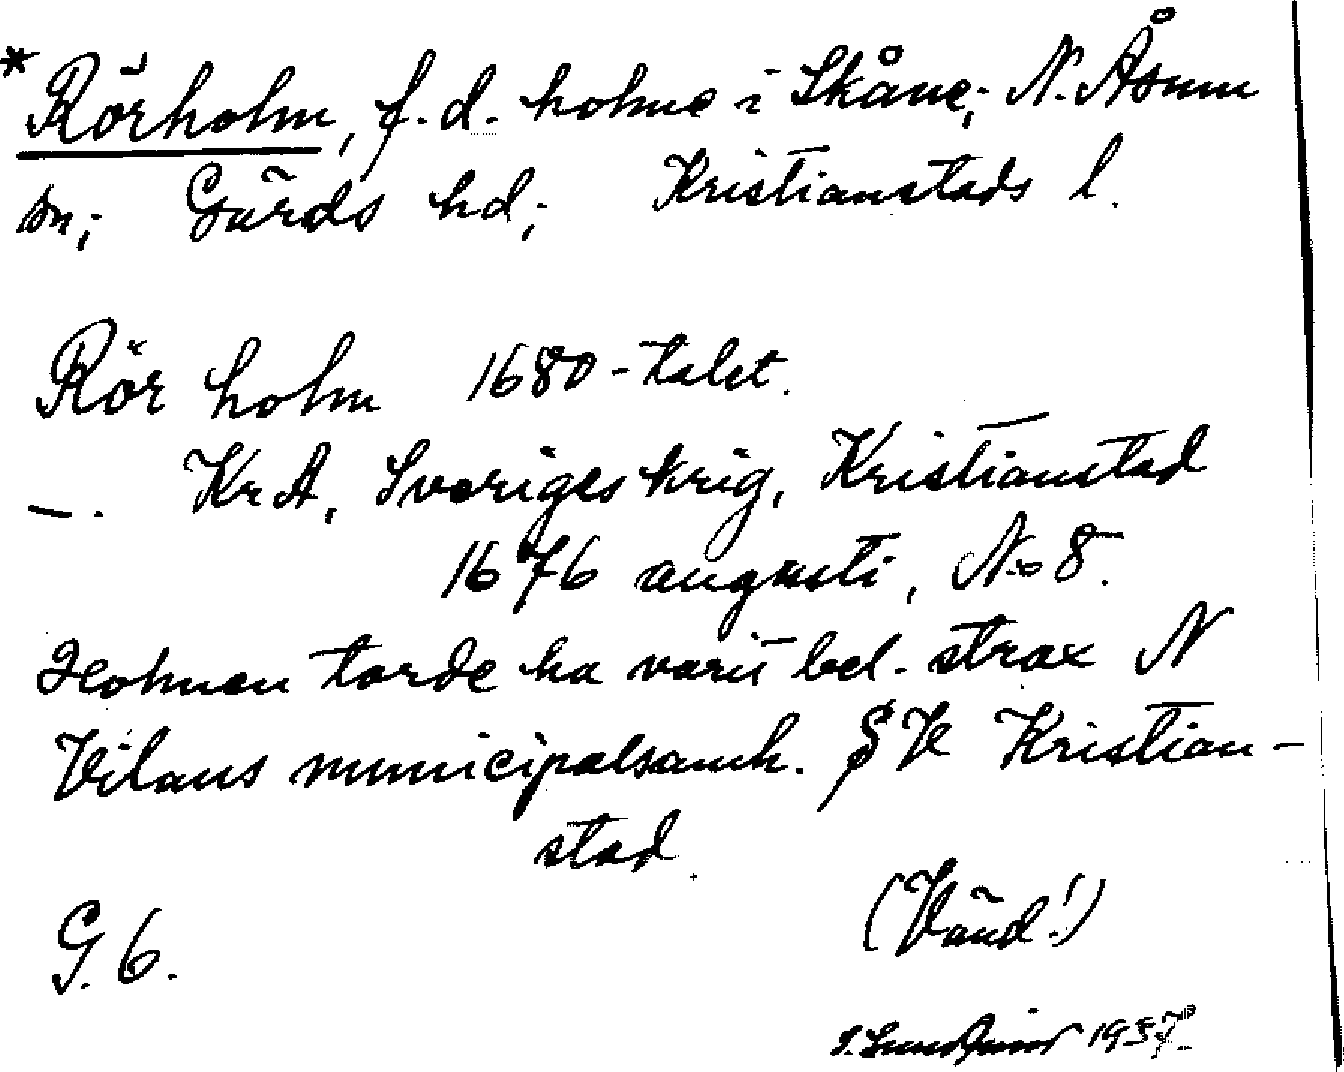 * Rörholm, f.d. holme i Skåne; N. Åsum
sn; Gärds hd; Kristianstads l.
Rör holm 1680-talet.
—. KrA, Sveriges krig, Kristianstad
1676 augusti, No 8.
Holmen torde ha varit bel. strax N
Vilans municipalsamh. SV Kristian-
stad.
(Vänd!)
G. 6.
1957.